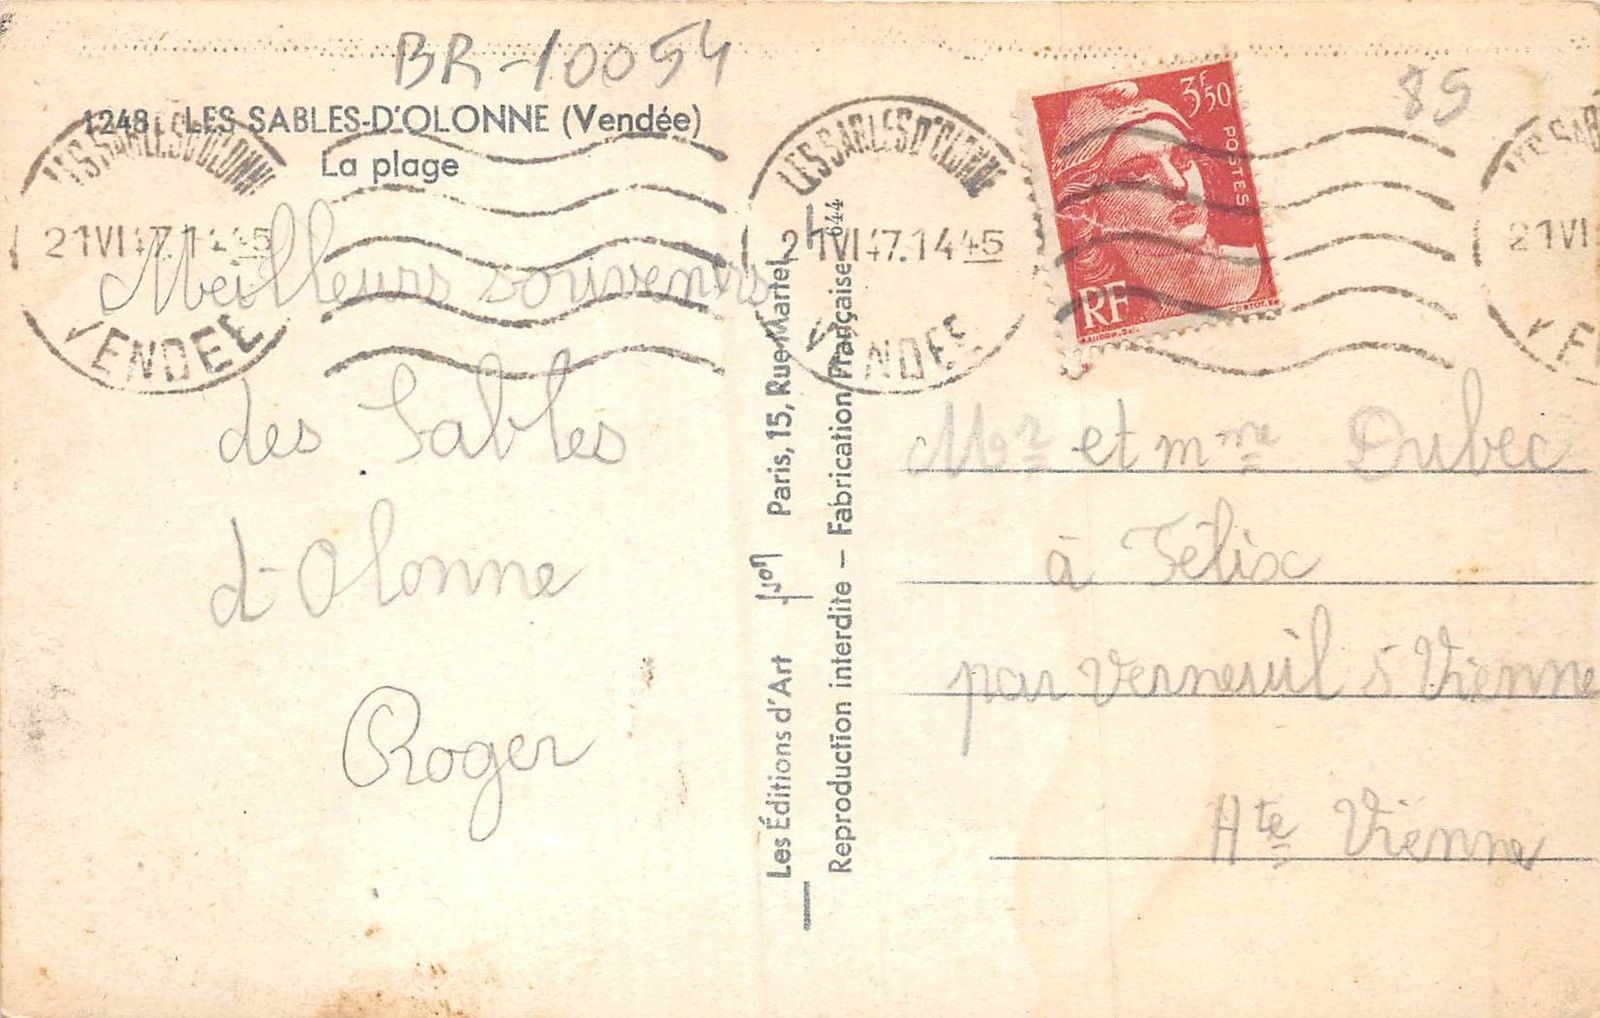 BR-10054
85
1248 LES SABLES-D'OLONNE (Vendée)
La plage
LES SABLES D'OLONNE
21 VI 47. 1445
VENDEE
LES SABLES D'OLONNE
21 VI 47. 1445
VENDEE
3f50
POSTES
RF
Meilleurs souvenirs
des Sables
d'Olonne
Roger
Les Éditions d'Art Yvon Paris, 15, Rue Martel
Reproduction interdite — Fabrication Française 644
Mr et mme Dubec
à Félix
par Verneuil s Vienne
Hte Vienne